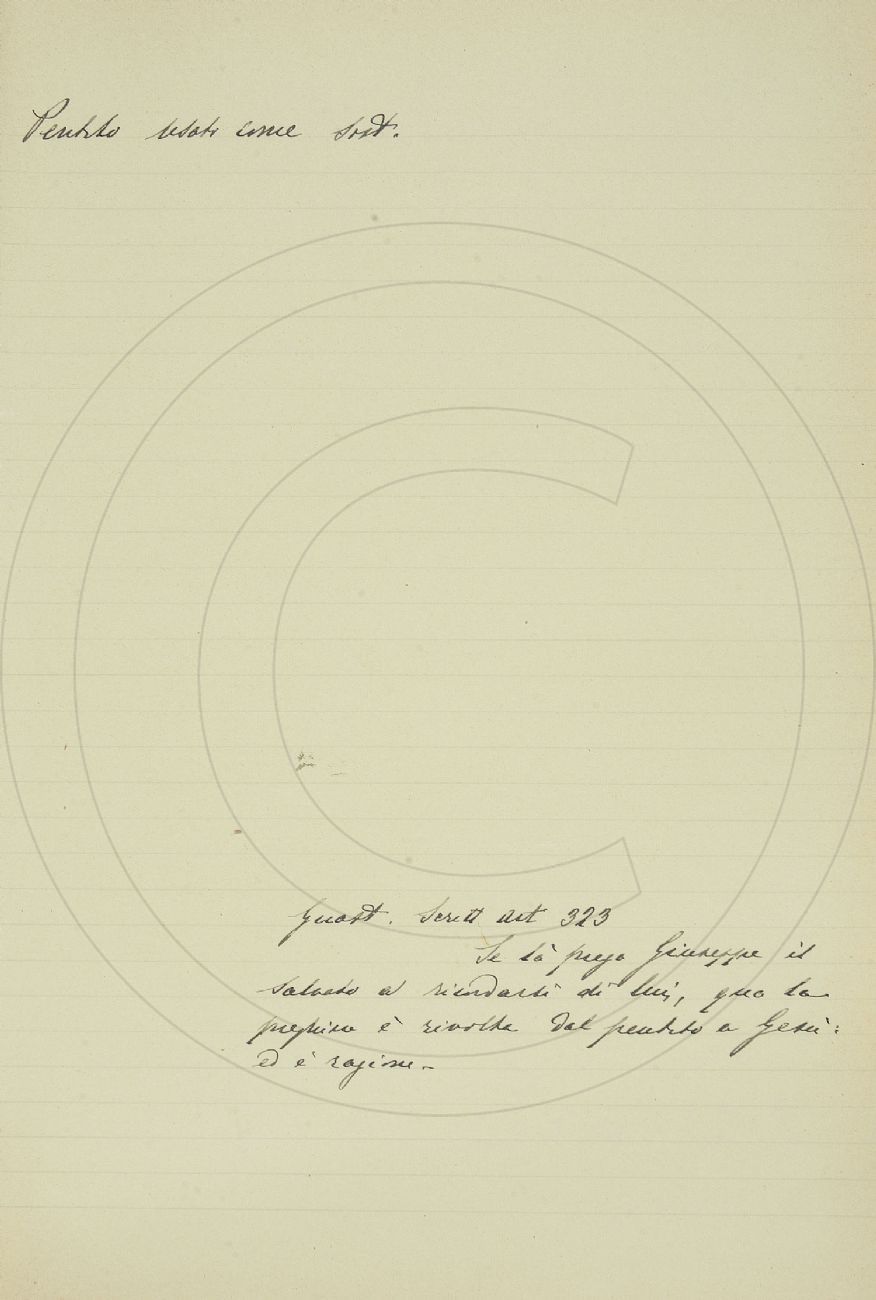 Pentito usato come sost.
Guast. Scritt art 323
Se là prega Giuseppe il
salvato a ricordarsi di lui, qua la
preghiera è rivolta dal pentito a Gesù:
ed è ragione.